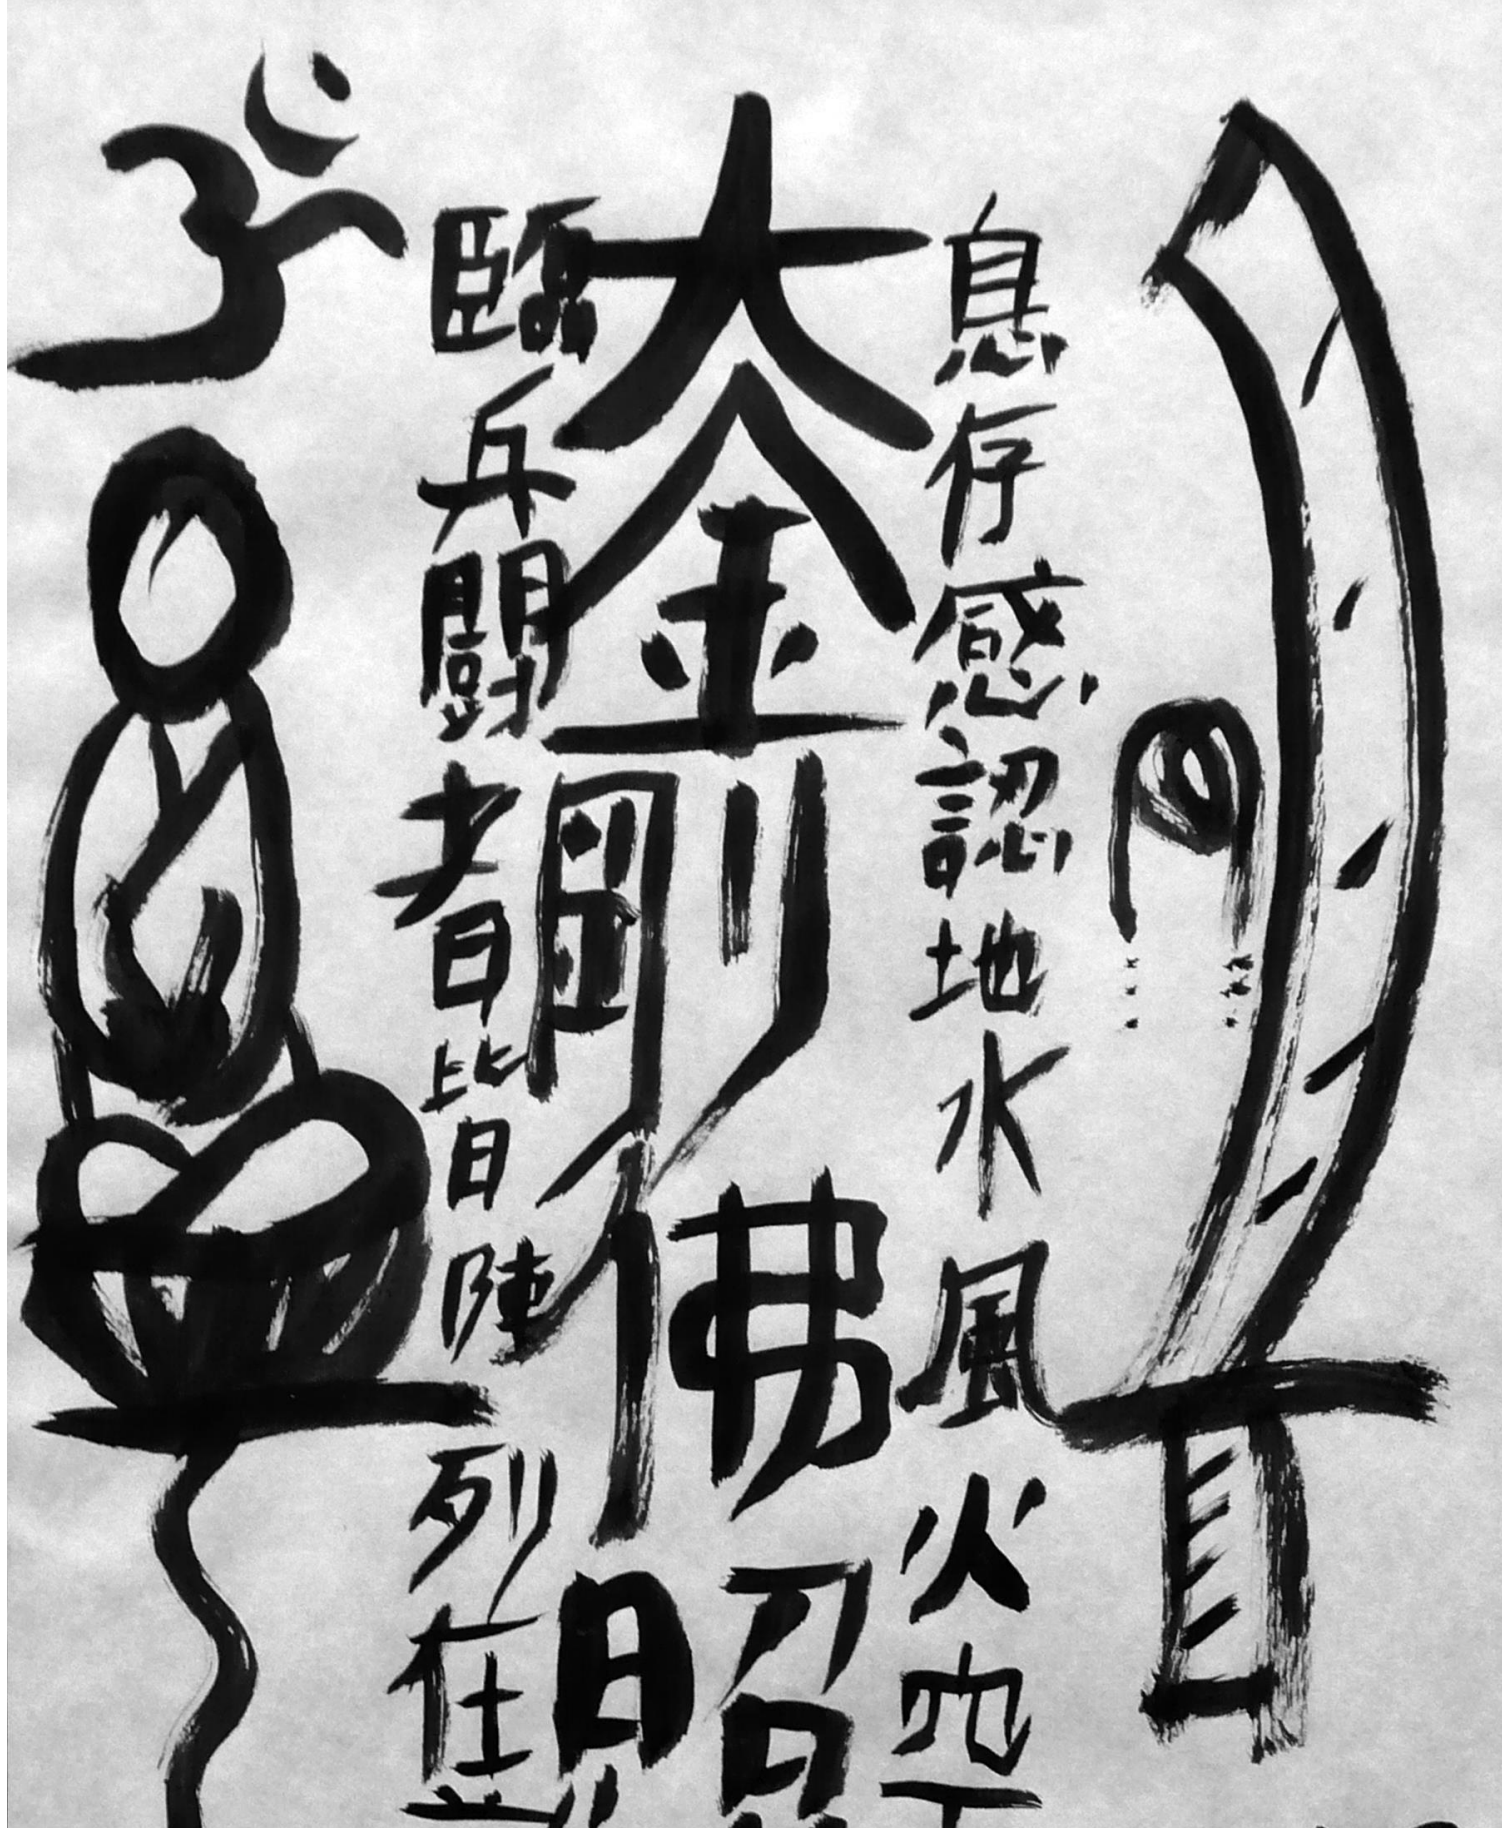 息存感認地水風火空
大金剛佛照
臨兵闘者皆陣列在
ॐ